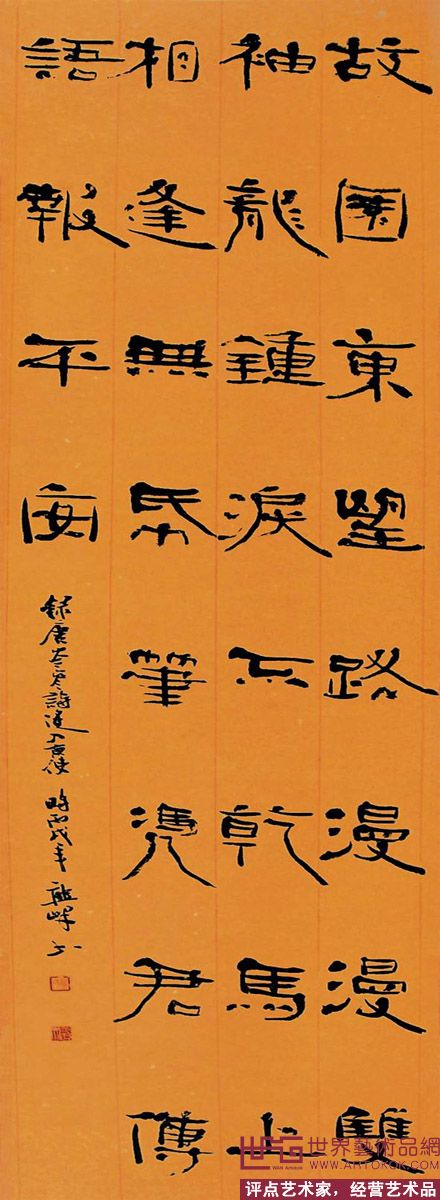 故園東望路漫漫雙
袖龍鍾淚不乾馬上
相逢無帋筆凴君傳
語報平安
錄唐岑參詩逢入京使 時丙戌年
世界藝術品網
评点艺术家，经营艺术品